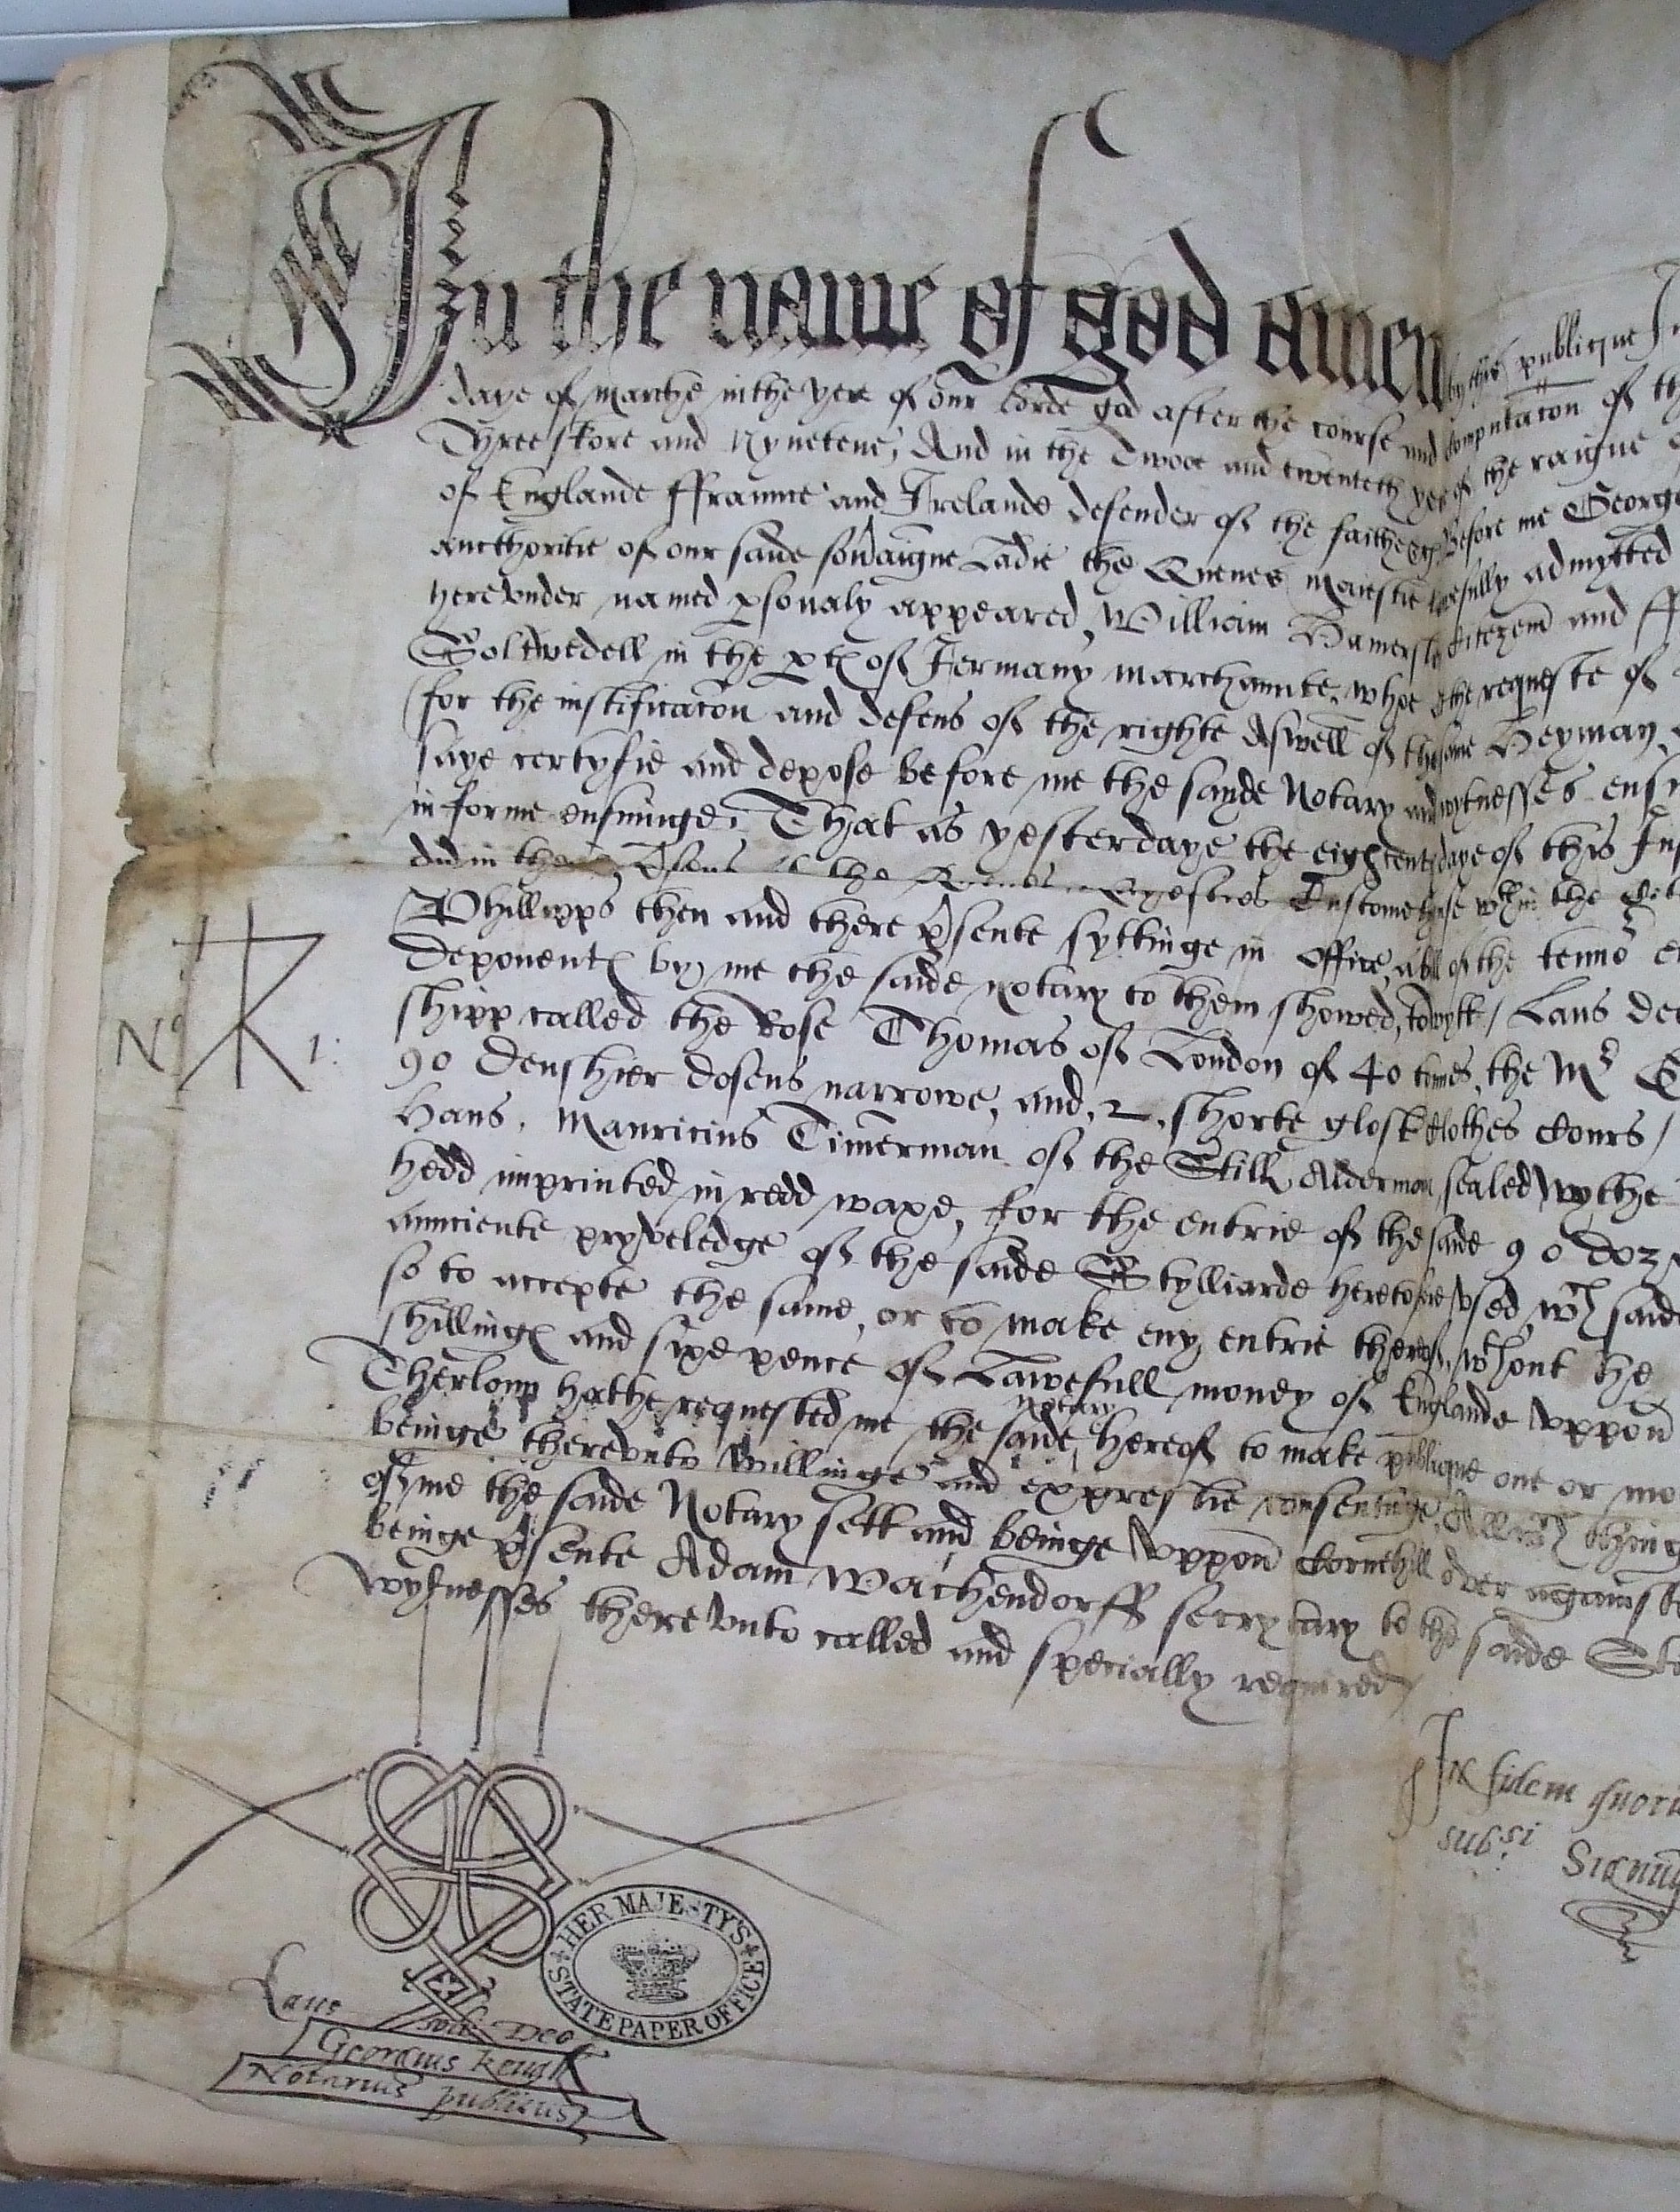 In the name of god amen by this publique In
daye of Marche in the yere of our lorde god after the course and computacon of th
Threeskore and Nynetene, And in the Twoe and twenteth yere of the raigne
of Englande ffraunce and Irelande defender of the faithe &c Before me George
aucthoritie of our saide sovaigne Ladie the Quenes Maiestie lawfully admytted
here vnder named psonaly appeared, William Hamersley Citezein and ff
Soltwedell in the ptes of Germany marchaunte, whoe at the requeste of
for the iustificacon and defens of the righte Aswell of the same Heyman,
saye certyfie and depose before me the sayde Notary and wytnesses ensu
in forme ensuinge, That as yesterdaye the eightenth daye of this Ins
did in the Quenes Maiesties Customehowse wthin the Cit
Phillipps then and there psente syttinge in Office, a bill of the tenno
deponentes by me the saide notary to them showed, to wytt / Laus deo
shipp called the Rose Thomas of London of 40 tonnes, the Mr
No 1:
90 Denshier dosens narrowe, and, 2, shorte clothes
Hans, Mauricius Timerman of the Still Alderman, sealed wythe
hedd imprinted in redd waxe, for the entrie of the saide 90 doz
aunciente pryveledge of the saide Stylliarde heretofore vsed, wch saide
so to accepte the same, or to make eny entrie therof, wthout he
shillinges and sixe pence of Lawefull money of Englande vppon
hathe requested me the saide notary hereof to make publique one or mo
beinge therevnto willinge and expreslie consentinge, All wch thing
of me the saide Notary sett and beinge vppon Cornehill over againste
beinge psente Adam Wachendorff secrytary to the saide St
wytnesses there vnto called and specially required
In fidem quoru
subsi Signu
Laus soli Deo
Georgius kevall
Notarius publicus
HER MAJESTY'S STATE PAPER OFFICE